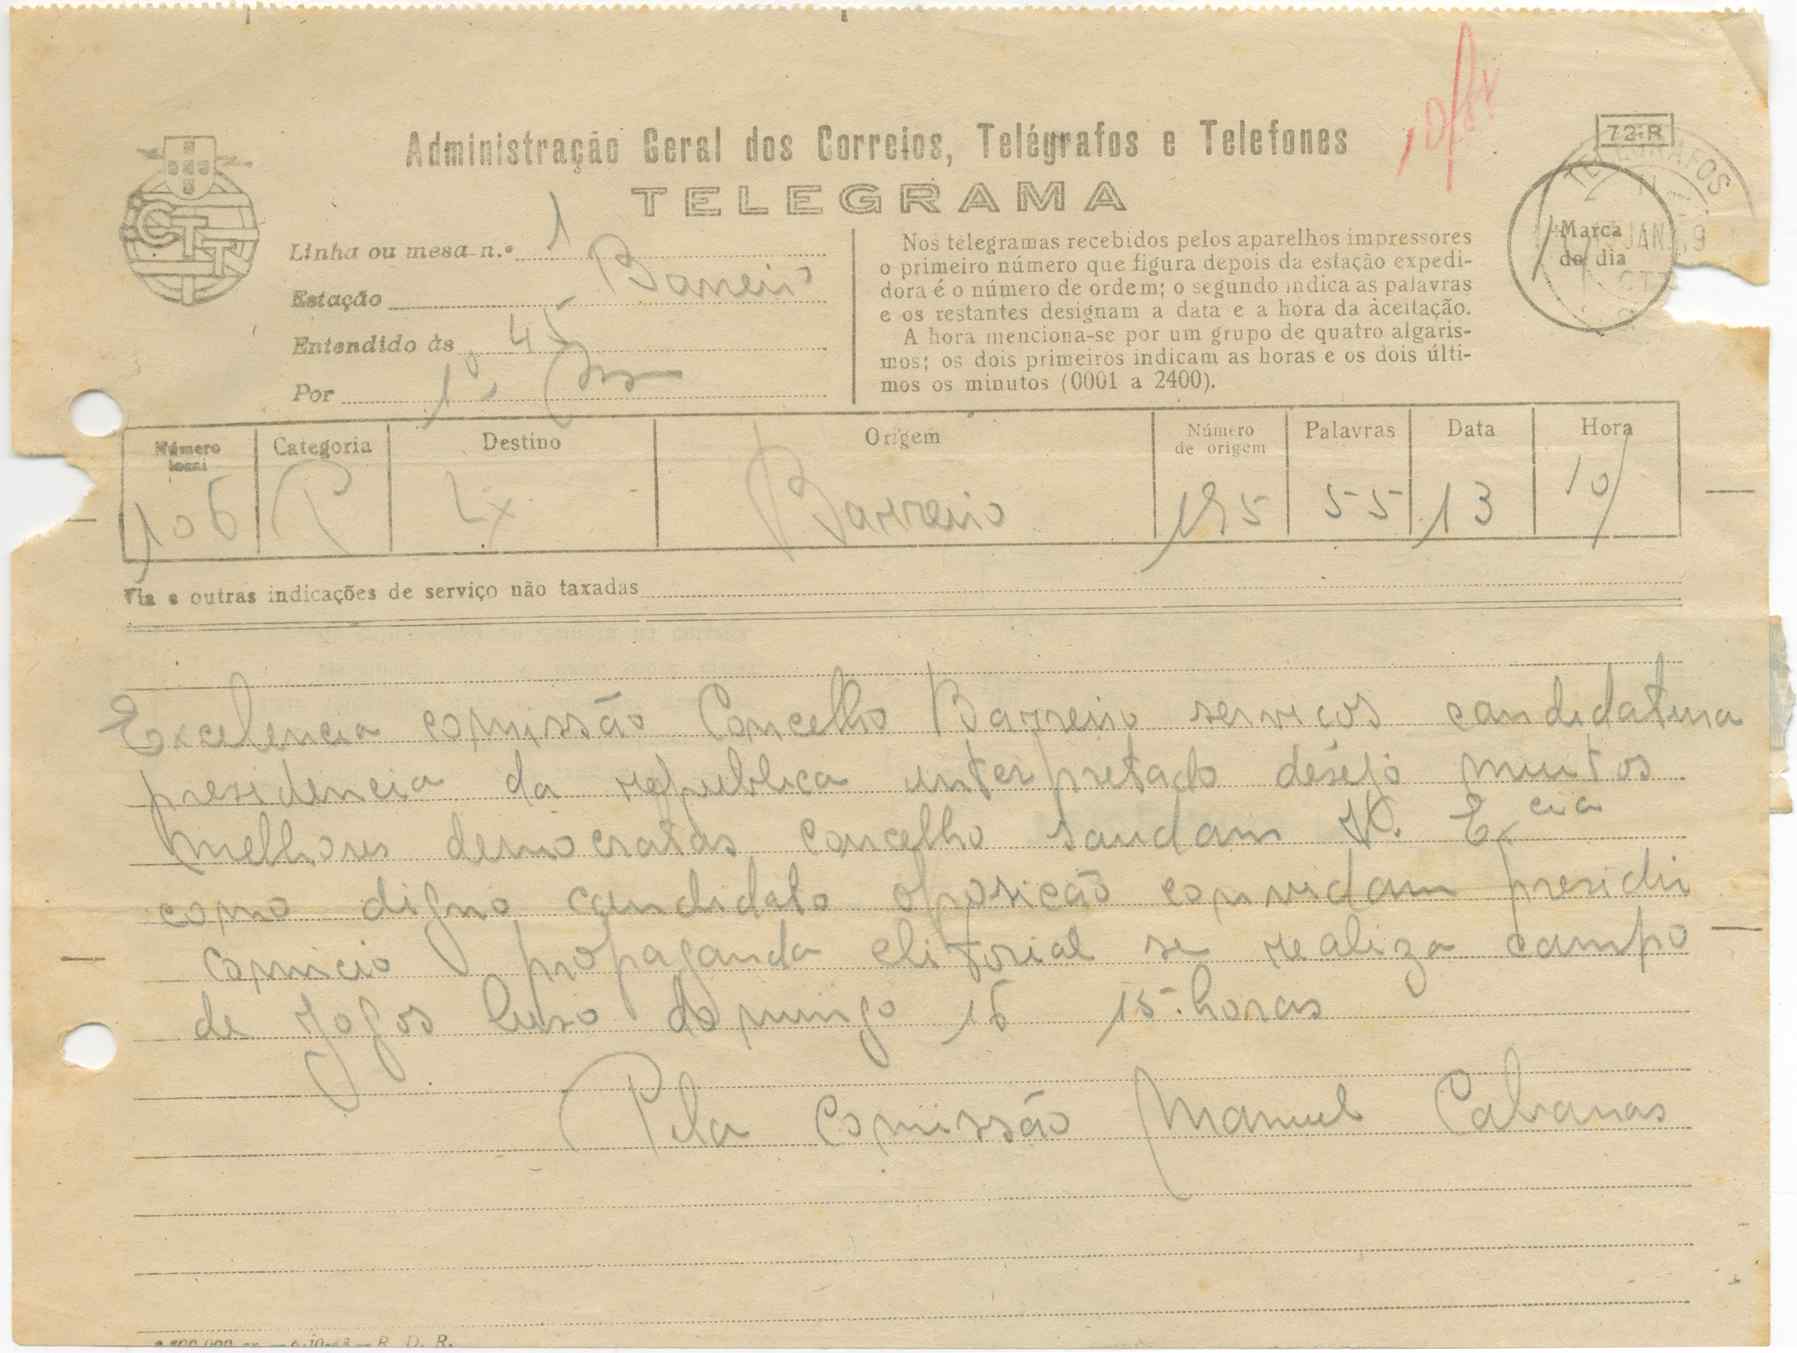 72-R
Administração Geral dos Correios, Telégrafos e Telefones
TELEGRAMA
CTT
Linha ou mesa n.º 1
Estação Barreiro
Entendido às 45
Por
Nos telegramas recebidos pelos aparelhos impressores
o primeiro número que figura depois da estação expedi-
dora é o número de ordem; o segundo indica as palavras
e os restantes designam a data e a hora da aceitação.
A hora menciona-se por um grupo de quatro algaris-
mos; os dois primeiros indicam as horas e os dois últi-
mos os minutos (0001 a 2400).
TELEGRAFOS
Marca
do dia
JAN
Número local Categoria Destino Origem Número de origem Palavras Data Hora
106 P Lx Barreiro 195 55 13 10
Via e outras indicações de serviço não taxadas
Excelencia comissão Concelho Barreiro servicos candidatura
presidencia da republica interpretado desejo muitos
melhores democratas concelho saudam V. Excia
como digno candidato oposicão convidam presidir
comicio propaganda elitorial se realiza campo
de jogos luso domingo 16 15 horas
Pela comissão Manuel Cabanas